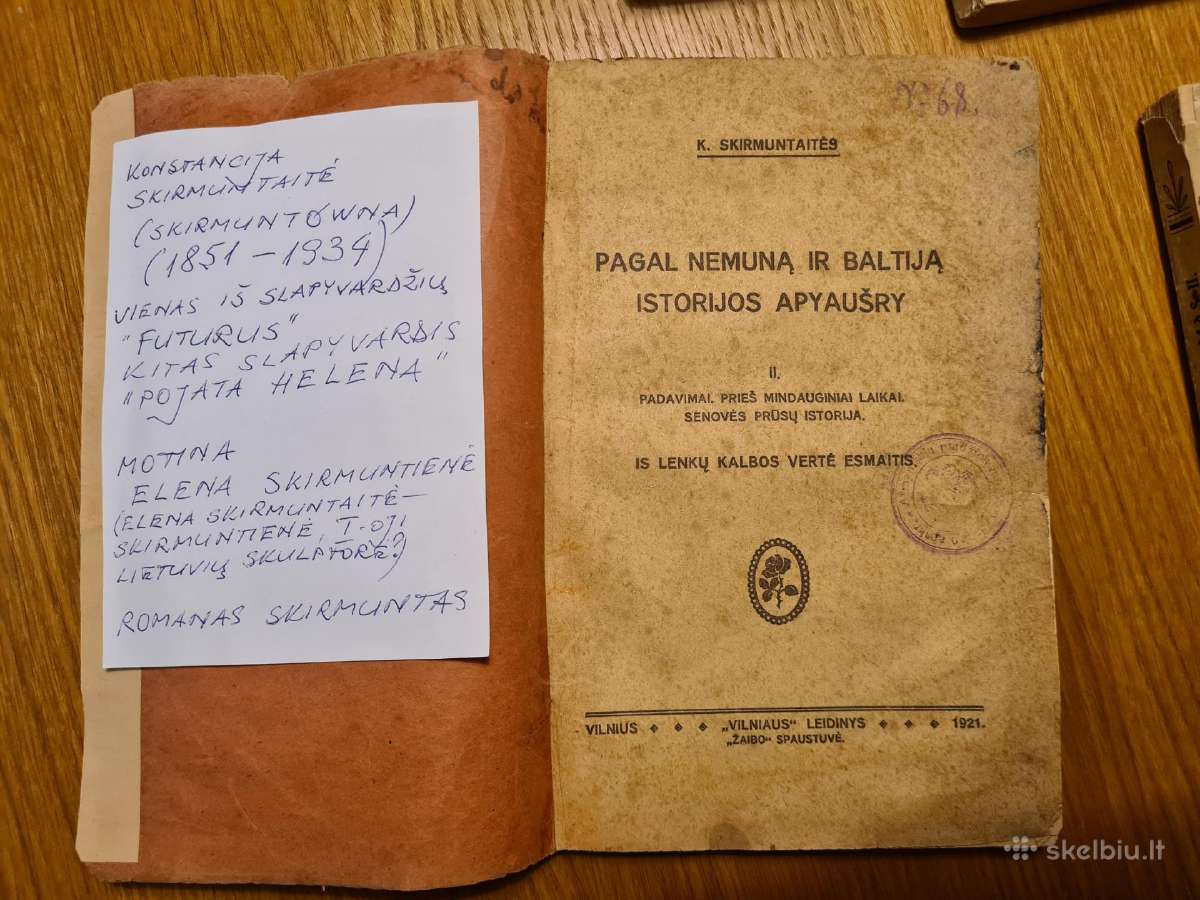 KONSTANCIJA
SKIRMUNTAITĖ
(SKIRMUNTÓWNA)
(1851 – 1934)
VIENAS IŠ SLAPYVARDŽIŲ
"FUTURUS"
KITAS SLAPYVARDIS
"POJATA HELENA"
MOTINA
ELENA SKIRMUNTIENĖ
(ELENA SKIRMUNTAITĖ–
SKIRMUNTIENĖ, I-OJI
LIETUVIŲ SKULPTORĖ?)
ROMANAS SKIRMUNTAS
№ 68.
K. SKIRMUNTAITĖS
PAGAL NEMUNĄ IR BALTIJĄ
ISTORIJOS APYAUŠRY
II.
PADAVIMAI. PRIEŠ MINDAUGINIAI LAIKAI.
SENOVĖS PRŪSŲ ISTORIJA.
IS LENKŲ KALBOS VERTĖ ESMAITIS.
VILNIUS „VILNIAUS" LEIDINYS 1921.
„ŽAIBO" SPAUSTUVĖ.
skelbiu.lt